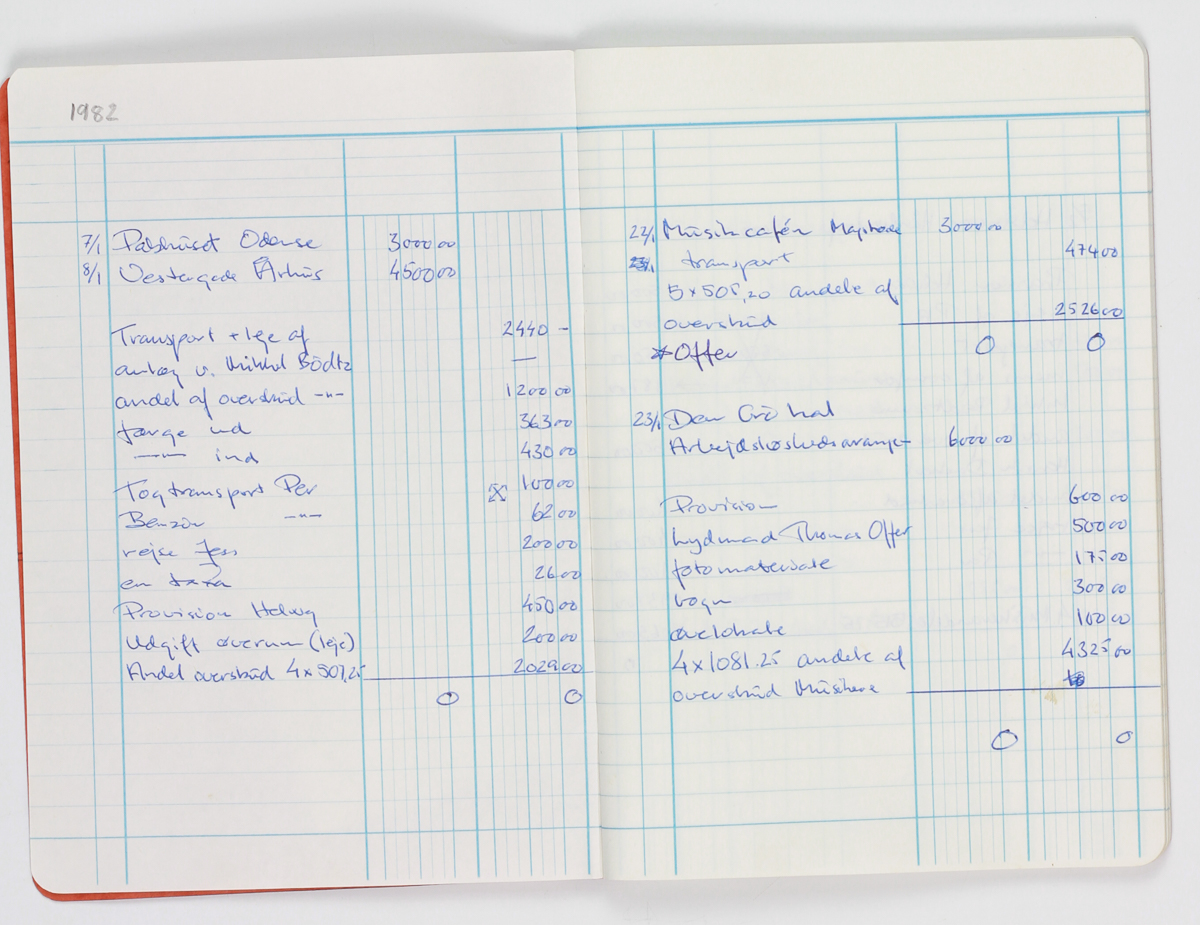 1982
7/1 Palshuset Odense 3000 00
8/1 Vestergade Århus 4500 00
Transport + leje af 2440 -
anlæg v. Mikkel Bödtz —
andel af overskud -"- 1200 00
færge ud 363 00
—"— ind 430 00
Togtransport Per 100 00
Benzin -"- 62 00
rejse Jess 200 00
en taxa 26 00
Provision Helwig 450 00
Udgift øverum (leje) 200 00
Andel overskud 4 x 507,25 2029 00
0 0
22/1 Musikcafén 3000 00
transport 474 00
5 x 505,20 andele af
overskud 2526 00
* Offer 0 0
23/1 Den Grå hal
6000 00
Provision 600 00
lydmand Thomas Offer 500 00
fotomateriale 175 00
vogn 300 00
øvelokale 100 00
4 x 1081.25 andele af 4325 00
overskud Musikere
0 0